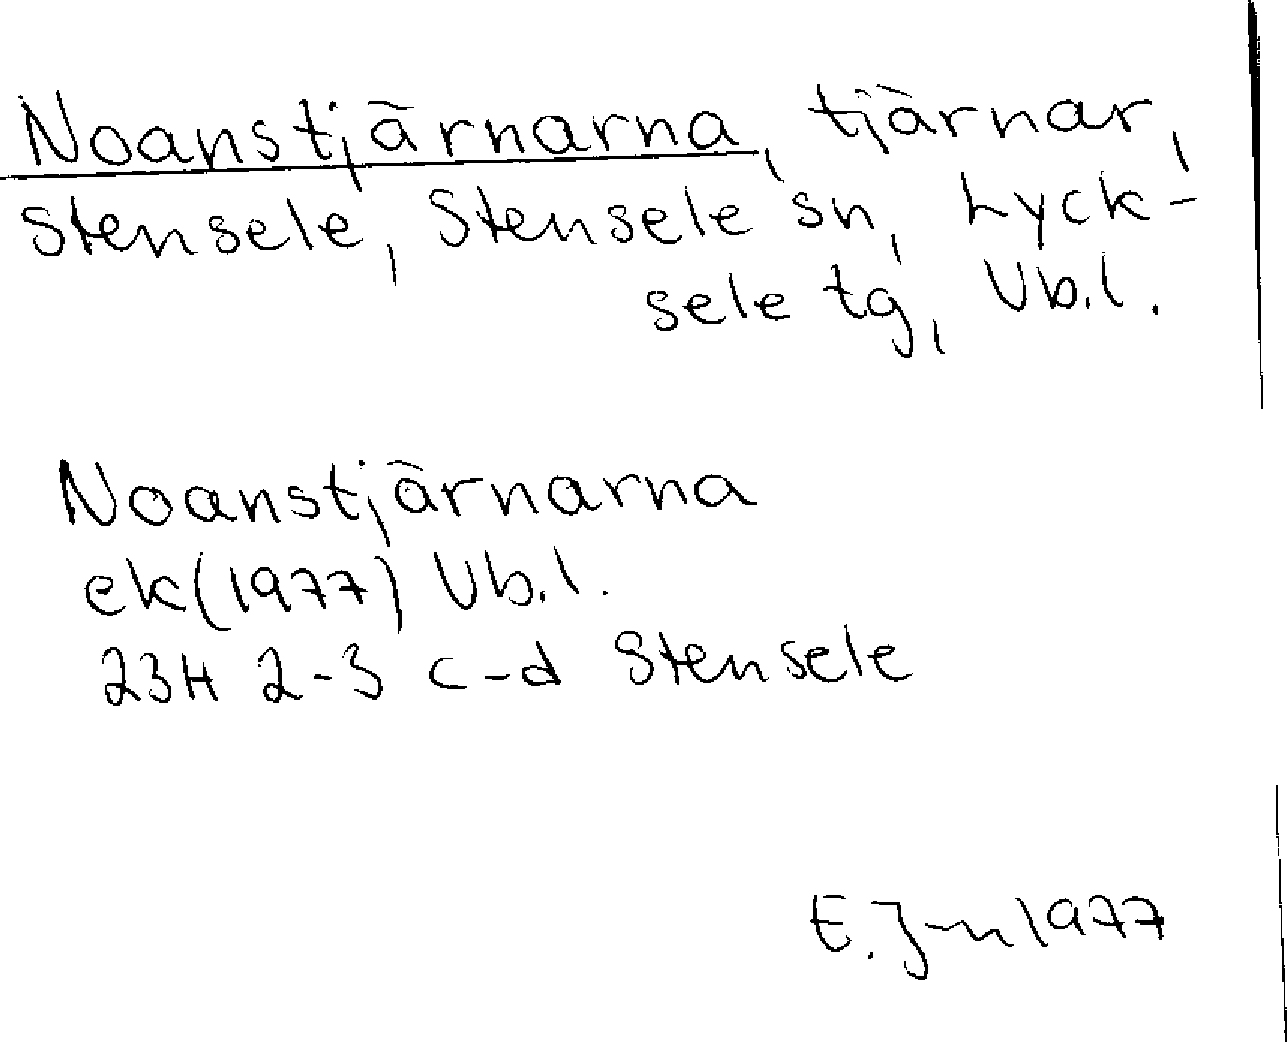 Noanstjärnarna, tjärnar,
Stensele, Stensele sn, Lyck-
sele tg, Vb.l.
Noanstjärnarna
ek(1977) Vb.l.
23H 2-3 c-d Stensele
E. J-n 1977